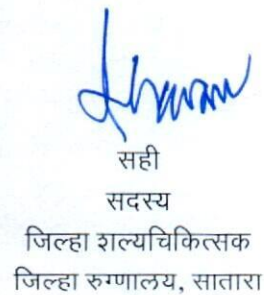 सही
सदस्य
जिल्हा शल्यचिकित्सक
जिल्हा रुग्णालय, सातारा